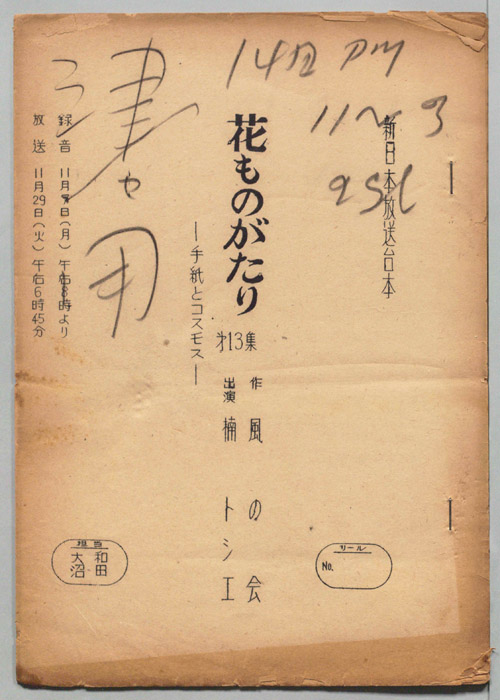 14日 PM
11〜3
新日本放送台本
花ものがたり
―手紙とコスモス―
才13集
作 風の会
出演 楠トシエ
録音 11月7日(月)午后8時より
放送 11月29日(火)午后6時45分
リール
No.
担当
和田
大沼